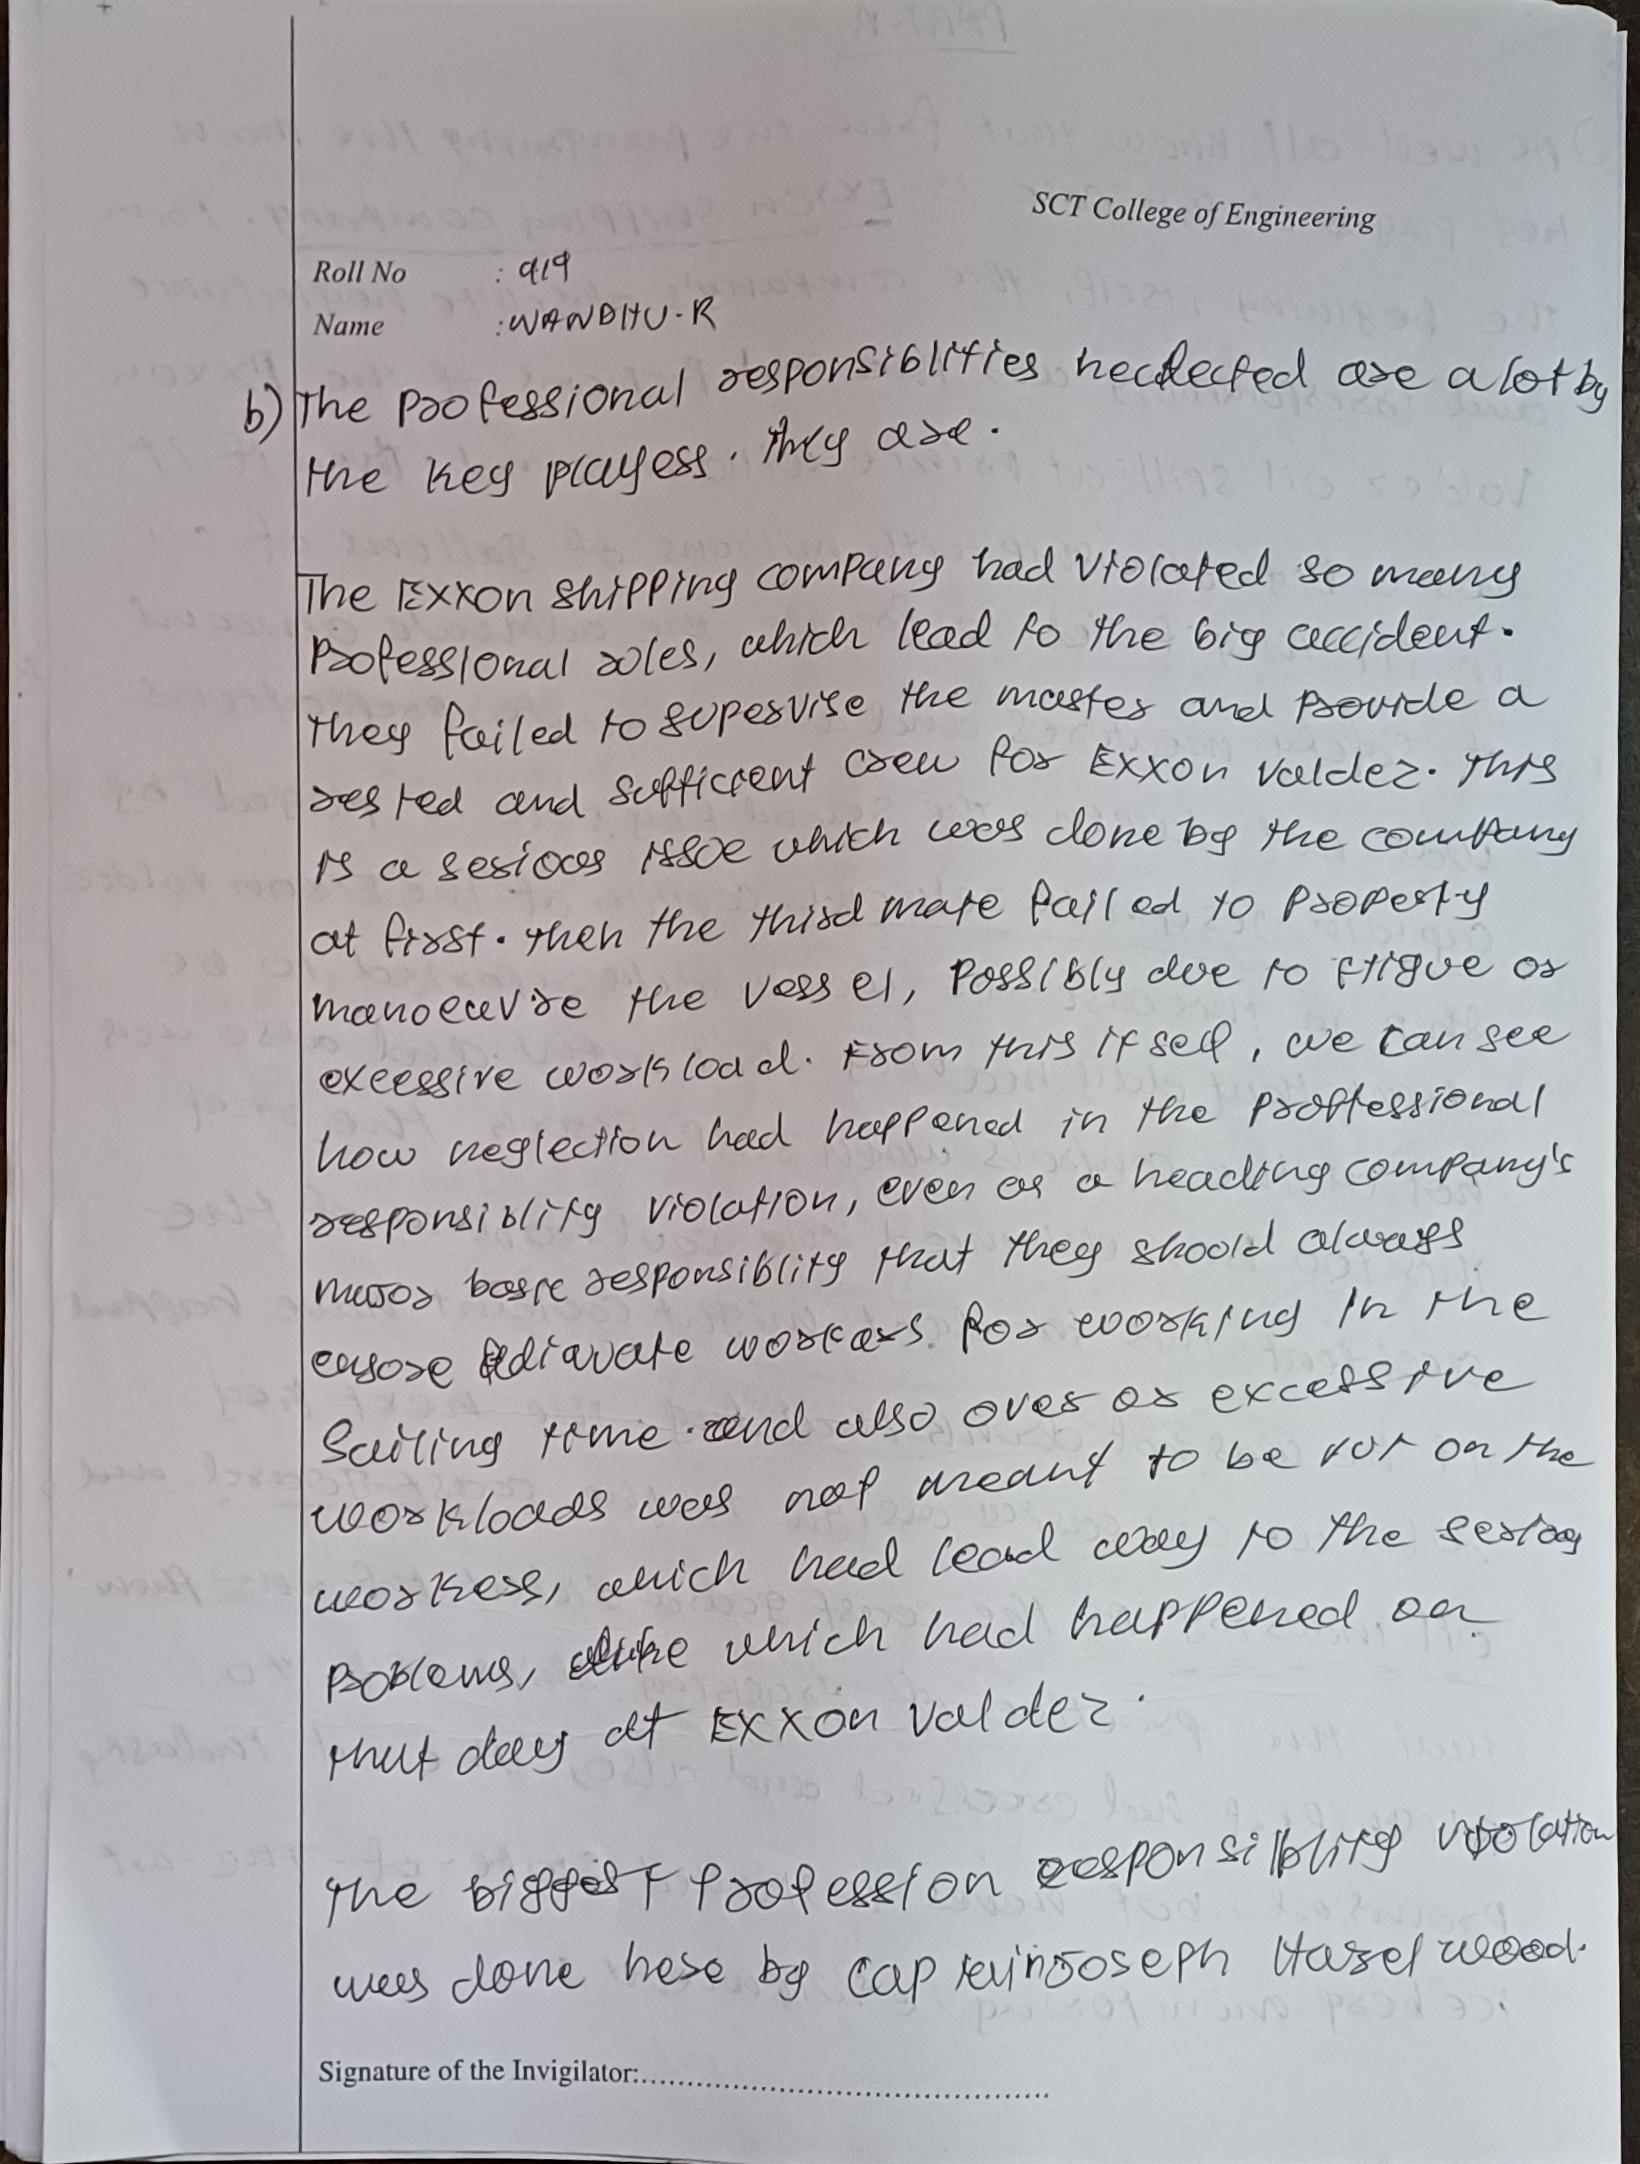 SCT College of Engineering
Roll No : 919
Name : WANDHU-R
b) The professional responsiblities neclected are a lot by
the key players. They are.
The Exxon shipping company had violated so many
professional roles, which lead to the big accident.
They failed to supervise the master and provide a
rested and sufficient crew for Exxon Valdez. This
is a serious issoe which was done by the company
at first. Then the third mate failed to property
manoeuvre the vessel, possibly due to ftigue or
excessive workload. From this itself, we can see
how neglection had happened in the proffessional
responsiblity violation, even as a heading company's
basic responsiblity that they shoold always
ensore adiavate workers. for working in the
Sailing time. and also over or excessive
workloads was not meant to be put on the
workers, which had lead way to the serioos
problems, which had happened on
that day at Exxon Valdez.
The biggest profession responsiblity violation
was done here by Captain Joseph Hazelwood.
Signature of the Invigilator: